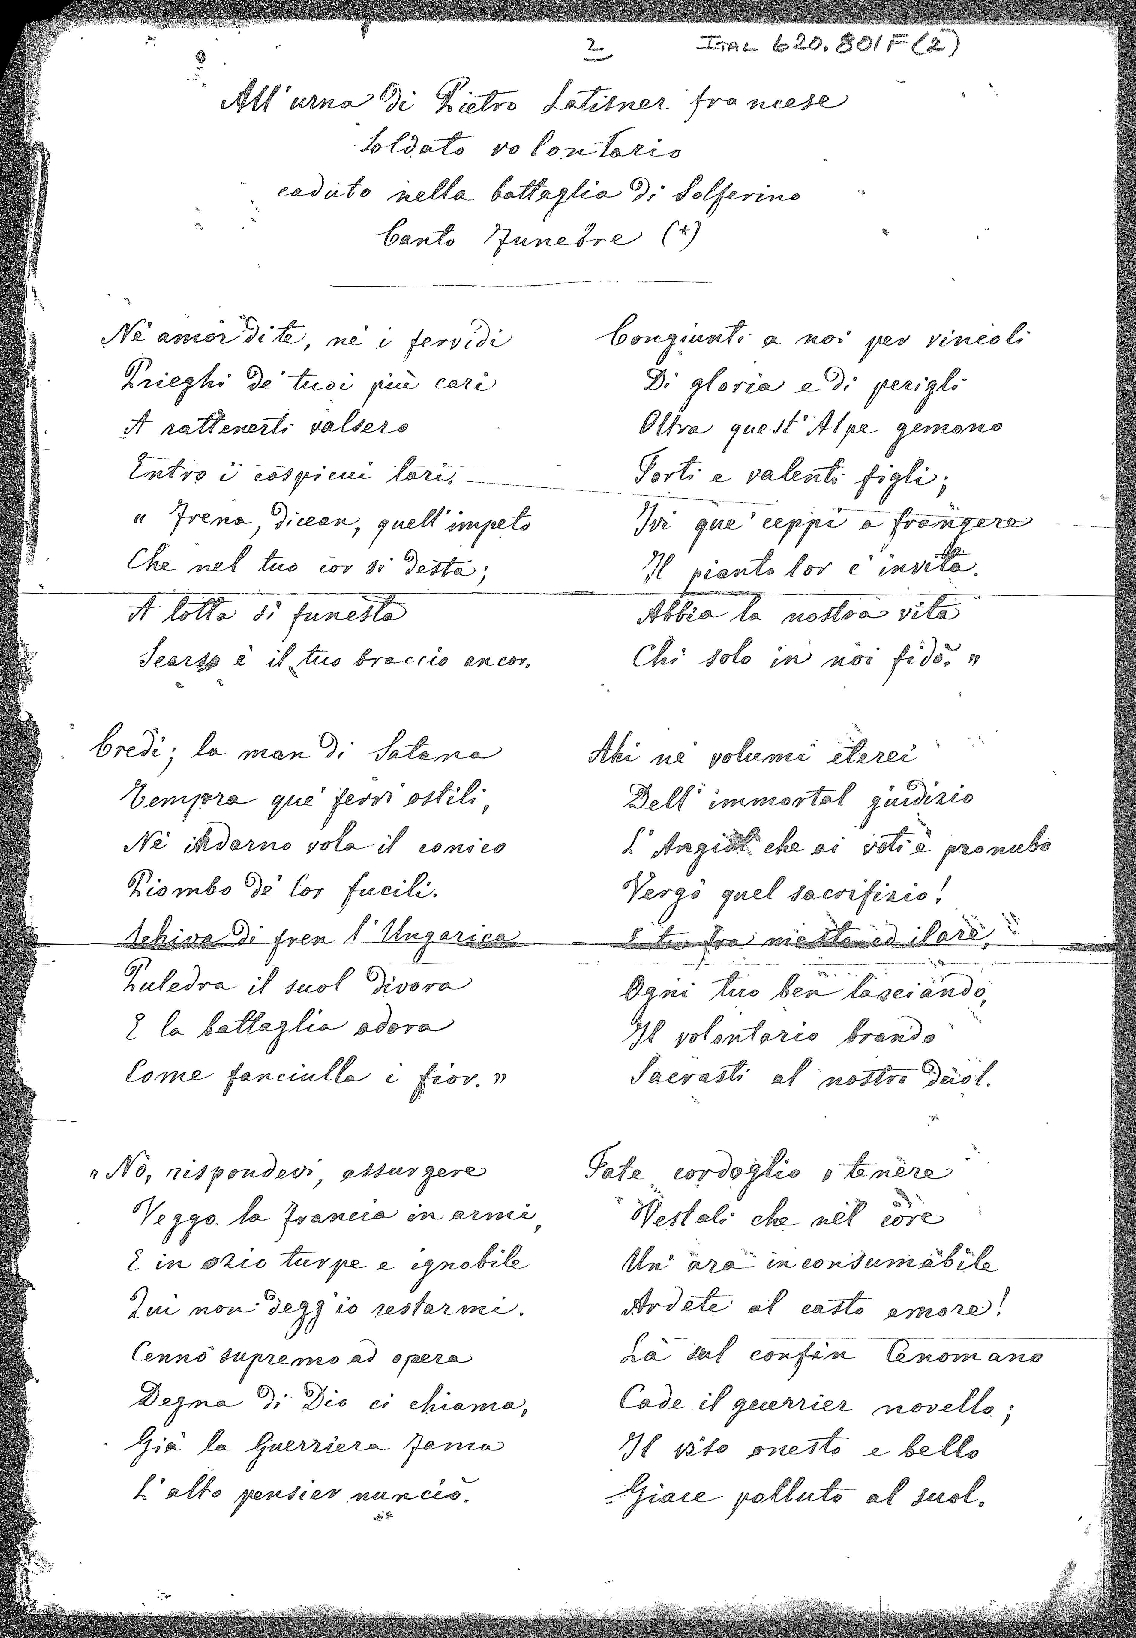 2
ITAL 620.801F(2)
All'urna di Pietro Latisner francese
Soldato volontario
caduto nella battaglia di Solferino
Canto Funebre (*)
Nè amor di te, nè i fervidi
Prieghi de' tuoi più cari
A rattenerti valsero
Entro i cospicui lari.
" Frena, dicean, quell'impeto
Che nel tuo cor si desta;
A lotta sì funesta
Scarso è il tuo braccio ancor.
Credi; la man di Satana
Tempra que' ferri ostili,
Nè indarno vola il conico
Piombo de' lor fucili.
Schiva di fren l'Ungarica
Puledra il suol divora
E la battaglia adora
Come fanciulla i fior. "
" No, rispondevi, assurgere
Veggo la Francia in armi,
E in ozio turpe e ignobile
Qui non degg'io restarmi.
Cenno supremo ad opera
Degna di Dio ci chiama,
Già la Guerriera Fama
L'alto pensier nunciò.
Congiunti a noi per vincoli
Di gloria e di perigli
Oltra quest'Alpe gemono
Forti e valenti figli;
Ivi que' ceppi a frangere
Il pianto lor c'invita.
Abbia la nostra vita
Chi solo in noi fidò. "
Ahi ne' volumi eterei
Dell'immortal giudizio
L'Angiol che ai voti è pronubo
Vergò quel sacrifizio!
E tu fra mesto ed ilare,
Ogni tuo ben lasciando,
Il volontario brando
Sacrasti al nostro duol.
Fate cordoglio o tenere
Vestali che nel core
Un'ara inconsumabile
Ardete al casto amore!
Là sul confin Cenomano
Cade il guerrier novello;
Il viso onesto e bello
Giace polluto al suol.